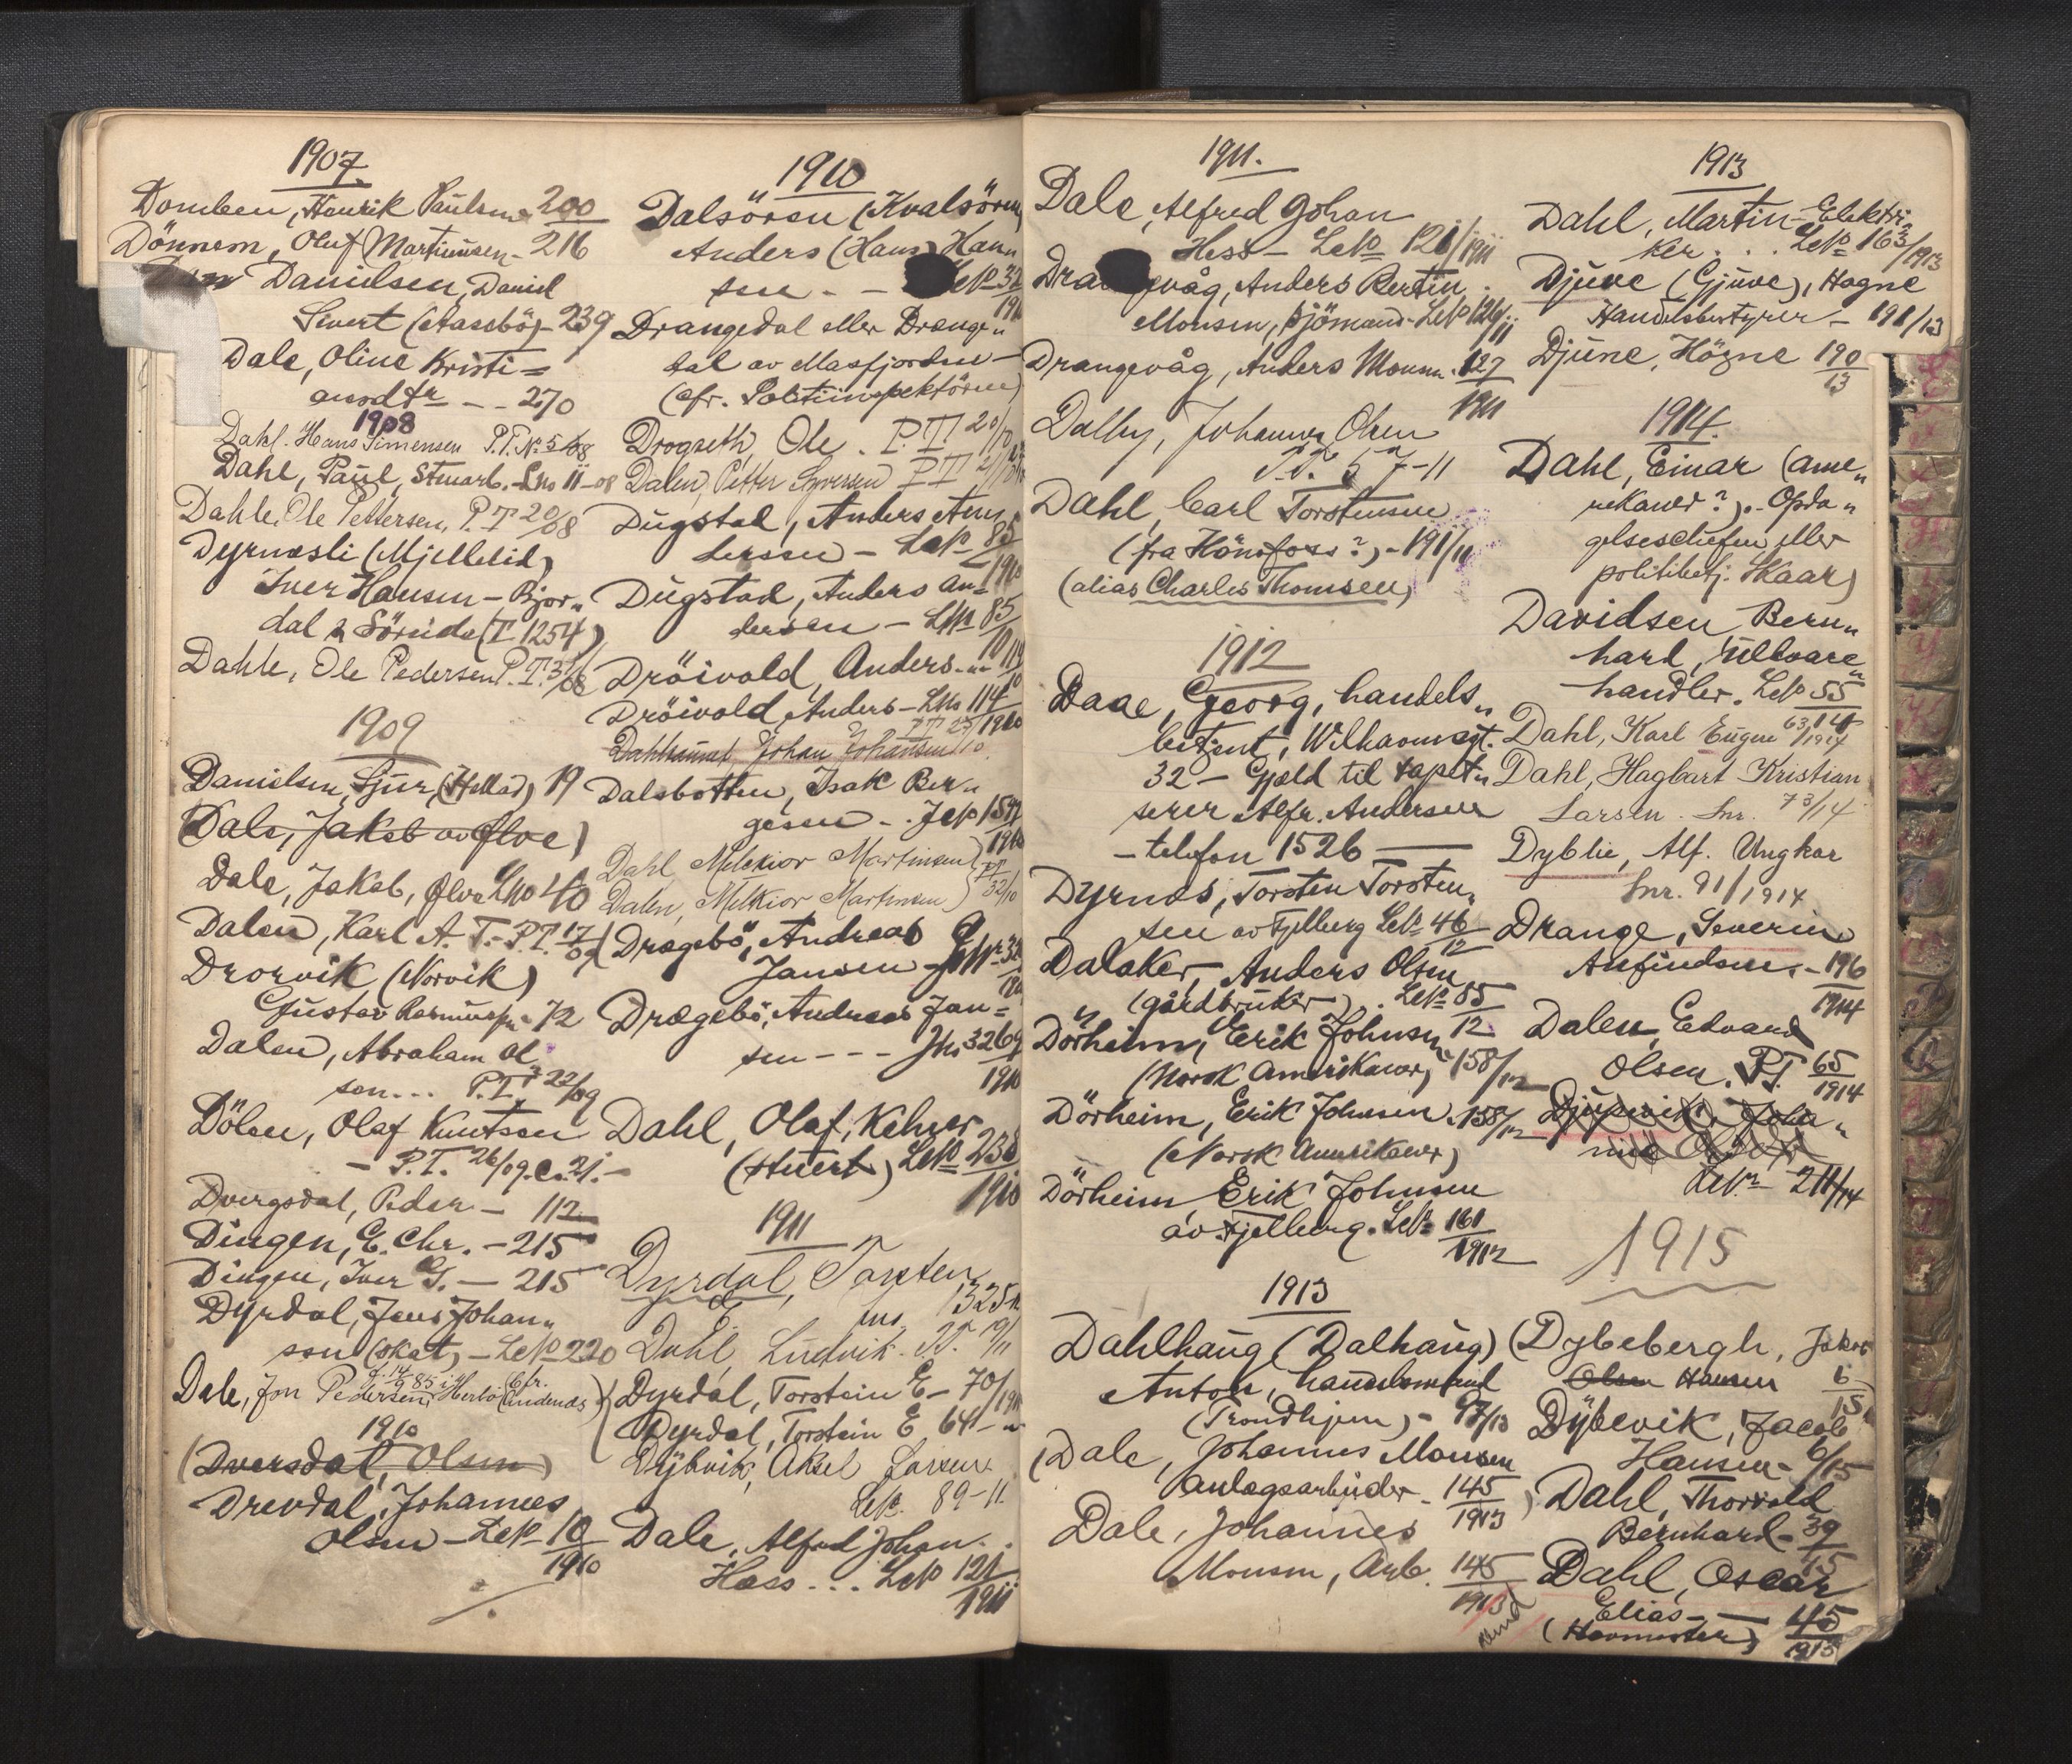 1907
Domben, Henrik Paulsen 200
Dönnem, Oluf Martinusen - 216
Danielsen, Daniel
Sivert (Aasebö) - 239
Dale, Oline Kristi=
ansdtr - - 270
1908
Dahl. Hans Simensen P.T. N. 5/08
Dahl, Paul, Stuarb. - Lno 11-08
Dahle, Ole Pettersen, P.T 20/08
Dyrnæsli (Mjellelid)
Iver Hansen - Bjor„
dal & Söreide (T 1254)
Dahle, Ole Pedersen P.T. 37/08
1909
Danielsen, Sjur, (Hellad) 19
(Dale, Jakob av Ølve)
Dale, Jakob, Ølve Lno 40
Dalen, Karl A. T. - P.T. 17/09
Drorvik (Norvik)
Gustav Rasmussen 72
Dalen, Abraham Ol
sen... P.T. 22/09
Dölen, Olaf Knutsen
- P.T. 26/09. C. 21. -
Dvergsdal, Peder - 112
Dingen, E. Chr. - 215
Dingen, Iver G. - 215
Dyrdal, Jens Johan„
sen (skat) - LNo 220
Dale, Jon Pedersen,
1910
(Dversdal, Olsen)
Drevdal, Johannes
Olsen - LNo 10
1910
1910
Dalsören (Kvalsören)
Anders (Hans) Han„
sen - - LNo 32
1910
Drangedal eller Drange„
dal av Masfjorden -
(cfr. Politiinspektören)
Drogseth, Ole . P.T. 20/10
Dalen, Petter Syversen P.T 21/10
Dugstad, Anders
- LNo 85
1910
Dugstad, Anders An=
dersen - LNo 85
10
Dröivold, Anders - „ 114
Dröivold, Anders - LNo 114
1910
Johan Johansen
Dalsbotten, Isak Ber„
gesen - . JNo
1910
Dahl Melkior Martinsen)
Dalen, Melkior Martinsen) P.T. 32/10
Drægebö, Andreas
Jansen -
Drægebö, Andreas Jan=
sen - - - JNo 3269
1910
Dahl, Olaf, Kelner
(stuert) LNo 238
1910
1911
Dyrdal, Torsten
E. 1325
Dahl, Ludvik. P.T. 19/11
Dyrdal, Torstein E - 70/1911
Dyrdal, Torstein E 641 - „
Dybvik, Aksel Larsen
LNo. 89-11.
Dale, Alfred Johan.
Hess ... LNo 121
1911
1911.
Dale, Alfred Johan
Hess - LNo 121/1911
Drangevåg, Anders Bertin
Monsen, sjömand - LNo 126/11
Drangevåg, Anders Monsen. 127
1911
Dalby, Johannes Olsen
P.T. 57-11
Dahl, Carl Torstensen
(fra Hönefoss?) - 191/11
(alias Charles Thomsen)
1912
Daae, Georg, handels„
betjent, Wilhavnsgt.
32 - Gjæld til tapet„
serer Alfr. Andersen
- telefon 1526 -
Dyrnes, Torsten Torsten„
sen av Fjelberg LNo 46
12
Dalaker, Anders Olsen
(gårdbruker) . LNo 85
12
Dörheim, Erik Johnsen
(Norsk Amerikaner) 158/12
Dörheim, Erik Johnsen 158/12
(Norsk Amerikaner)
Dörheim Erik Johnsen
av Fjelberg. LNo 161
1912
1913
Dahlhaug (Dalhaug)
Anton, handelsmand
(Trondhjem) - 97/13
(Dale, Johannes Monsen
Anlægsarbeider - 145
1913)
Dale, Johannes
Monsen, Arb. 145
1913
1913
Dahl, Martin - Elektri„
ker . . . LNo 163/1913
Djuve (Gjuve), Hogne
Handelsbestyrer - 191/13
Djuve, Högne 190
13
1914.
Dahl, Einar (ame„
rikaner?). - Opda„
gelseschefen eller
politibetj. Skaar)
Davidsen Bern„
hard, Uldvare„
handler. LNo 55
1914
Dahl, Karl Eugen 63/1914
Dahl, Hagbart Kristian
Larsen. Lnr. 73/14
Dyblie, Alf. Ungkar
Lnr. 91/1914
Drange, Severin
Anfindsen. - 196
1914
Dalen, Edvard
Olsen. P.T. 65
1914
LNo - 211/14
1915
(Dybebergh, Jakob
Olsen Hansen 6
15)
Dybevik, Jacob
Hansen - 6/15
Dahl, Thorvald
Bernhard - 39
15
Dahl, Oscar
Elias - - 45
(Havnmester) 1915